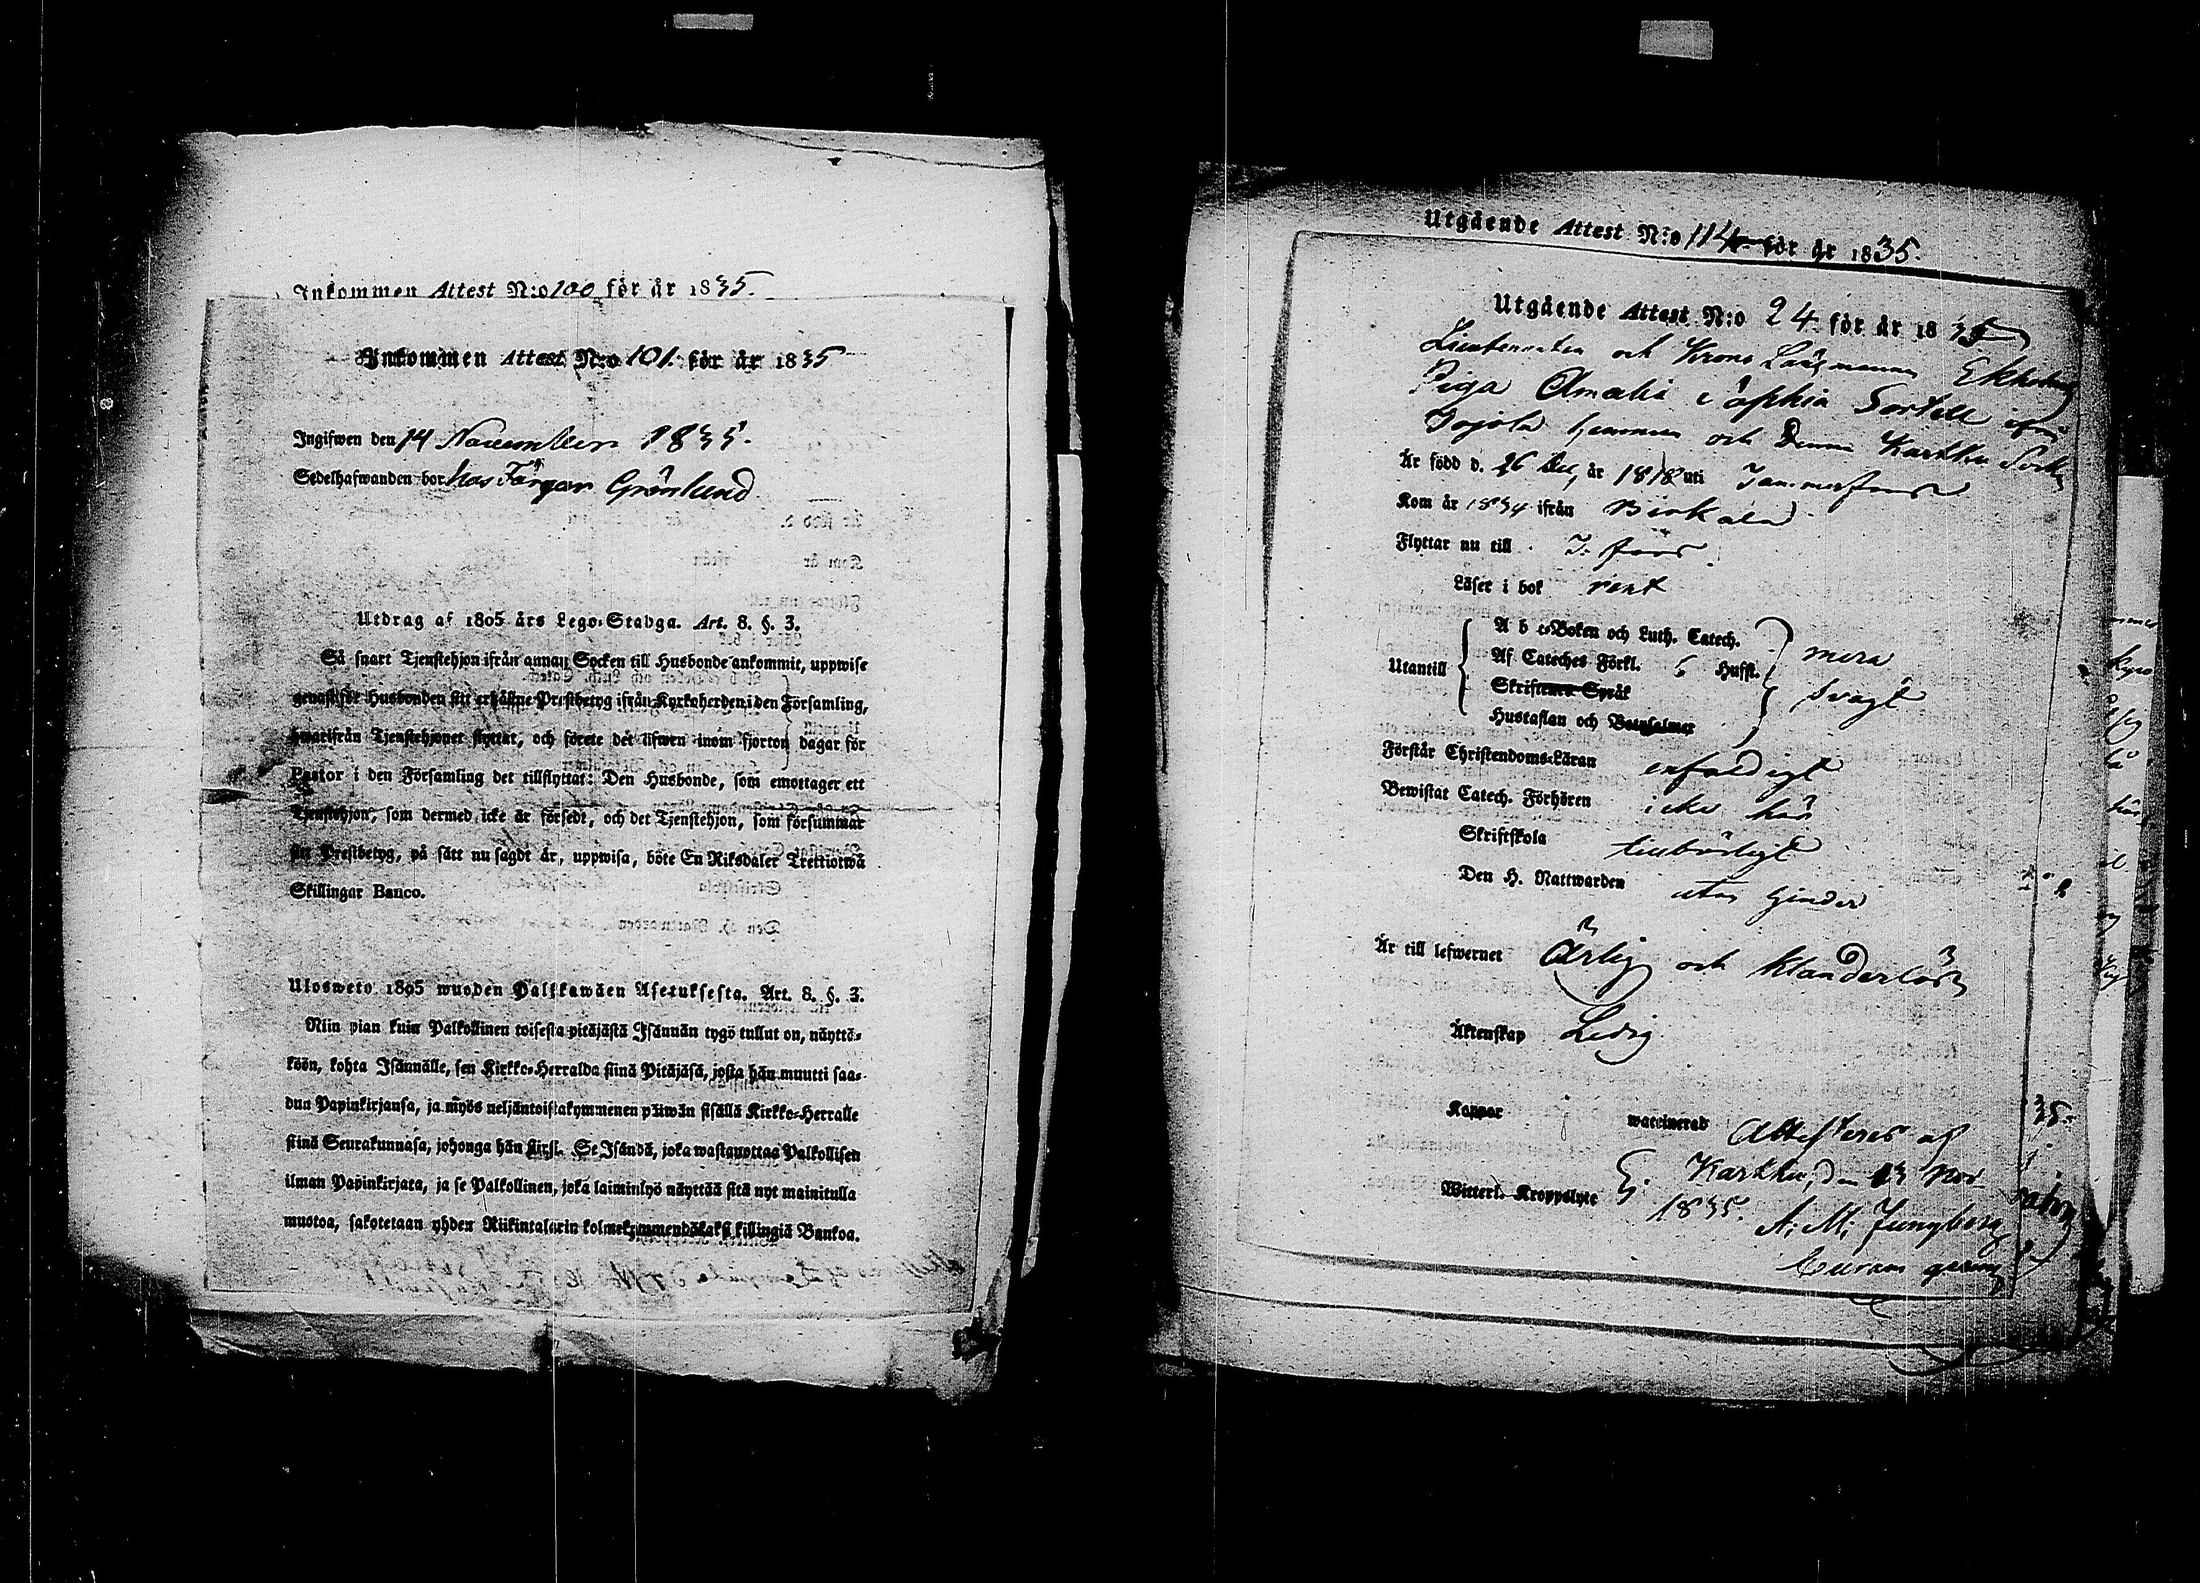 Inkommen Attest N:o 100 för år 1835.
Inkommen Attest N:o 101. för år 1835
Ingifwen den 14 November 1835.
Sedelhafwanden bor hos Färgar Grönlund
Utdrag af 1805 års Lego-Stadga. Art. 8. §. 3.
Så snart Tjenstehjon ifrån annan Socken till Husbonde ankommit, uppwise
genast för Husbonden sitt erhållne Prestbetyg ifrån Kyrkoherden i den Församling,
hwarifrån Tjenstehjonet flyttat, och förete det äfwen inom fjorton dagar för
Pastor i den Församling det tillflyttat: Den Husbonde, som emottager ett
Tjenstehjon, som dermed icke är försedt, och det Tjenstehjon, som försummar
sitt Prestbetyg, på sätt nu sagdt är, uppwisa, böte En Riksdaler Trettiotwå
Skillingar Banco.
Ulosweto 1805 wuoden Palkkawäen Asetuksesta. Art. 8. §. 3.
Niin pian kuin Palkollinen toisesta pitäjästä Isännän tygö tullut on, näyttä-
köön, kohta Isännälle, sen Kirkko-Herralda siinä Pitäjäsä, josta hän muutti saa-
dun Papinkirjansa, ja myös neljäntoistakymmenen päiwän sisällä Kirkko-Herralle
siinä Seurakunnasa, johonga hän siirsi. Se Isändä, joka wastanottaa Palkollisen
ilman Papinkirjata, ja se Palkollinen, joka laiminlyö näyttää sitä nyt mainitulla
muotoa, sakotetaan yhden Riikintalarin kolmekymmendäkaksi killingiä Bankoa.
Utgående Attest N:o 114 för år 1835.
Utgående Attest N:o 24 för år 1835
Lieutenanten och Krono Länsmannen Ekholms
Piga Amalia Sophia Sortell ifrån
Jojola hemman och denna Karkku Sockn
Är född d. 26 Dec, år 1818 uti Tammerfors
Kom år 1834 ifrån Birkala
Flyttar nu till T. fors
Läser i bok rent
Utantill
A b c-Boken och Luth. Catech.
Af Cateches Förkl. 5 Hufst.
Skriftenes Språk
Hustaflan och Botpsalmer
mera
svagt
Förstår Christendoms-Läran enfaldigt
Bewistat Catech. Förhören icke här
Skriftskola tillbörligt
Den H. Nattwarden utan hinder
Är till lefwernet Ärlig och klanderlös
Äktenskap Ledig
Koppor waccinerad
Attesteras af
Witterl. Kroppslyte Ej.
Karkku, den 13 Nov
1835. A: M: Ljungberg